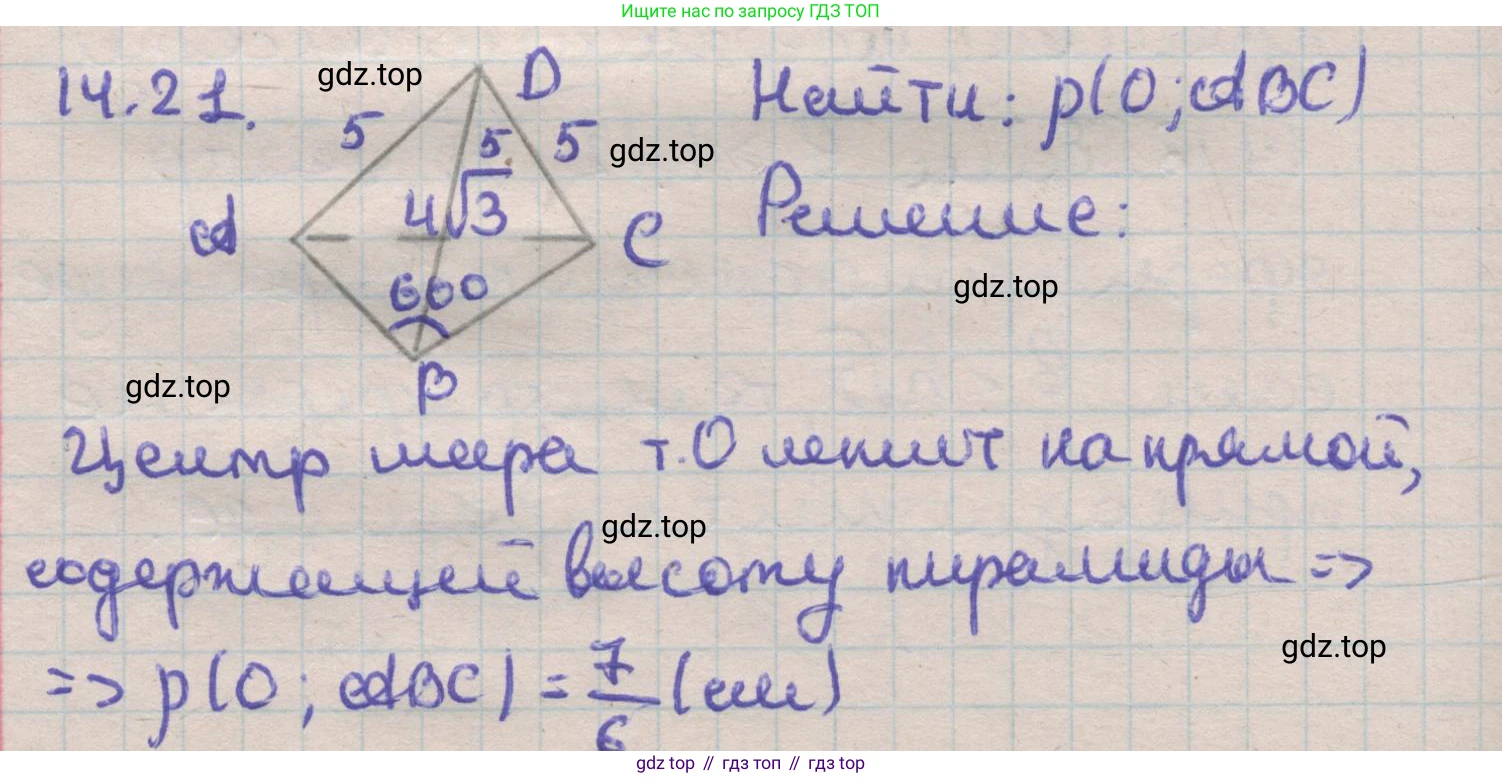 Ищите нас по запросу ГДЗ ТОП
14.21.
gdz.top
D
Найти: ρ(O; ABC)
5
5
5
gdz.top
A
4√3
C
Решение:
60°
gdz.top
B
gdz.top
Центр шара т. O лежит на прямой,
gdz.top
содержащей высоту пирамиды =>
gdz.top
=> ρ(O; ABC) = 7/6 (см)
gdz top // гдз топ // гдз top